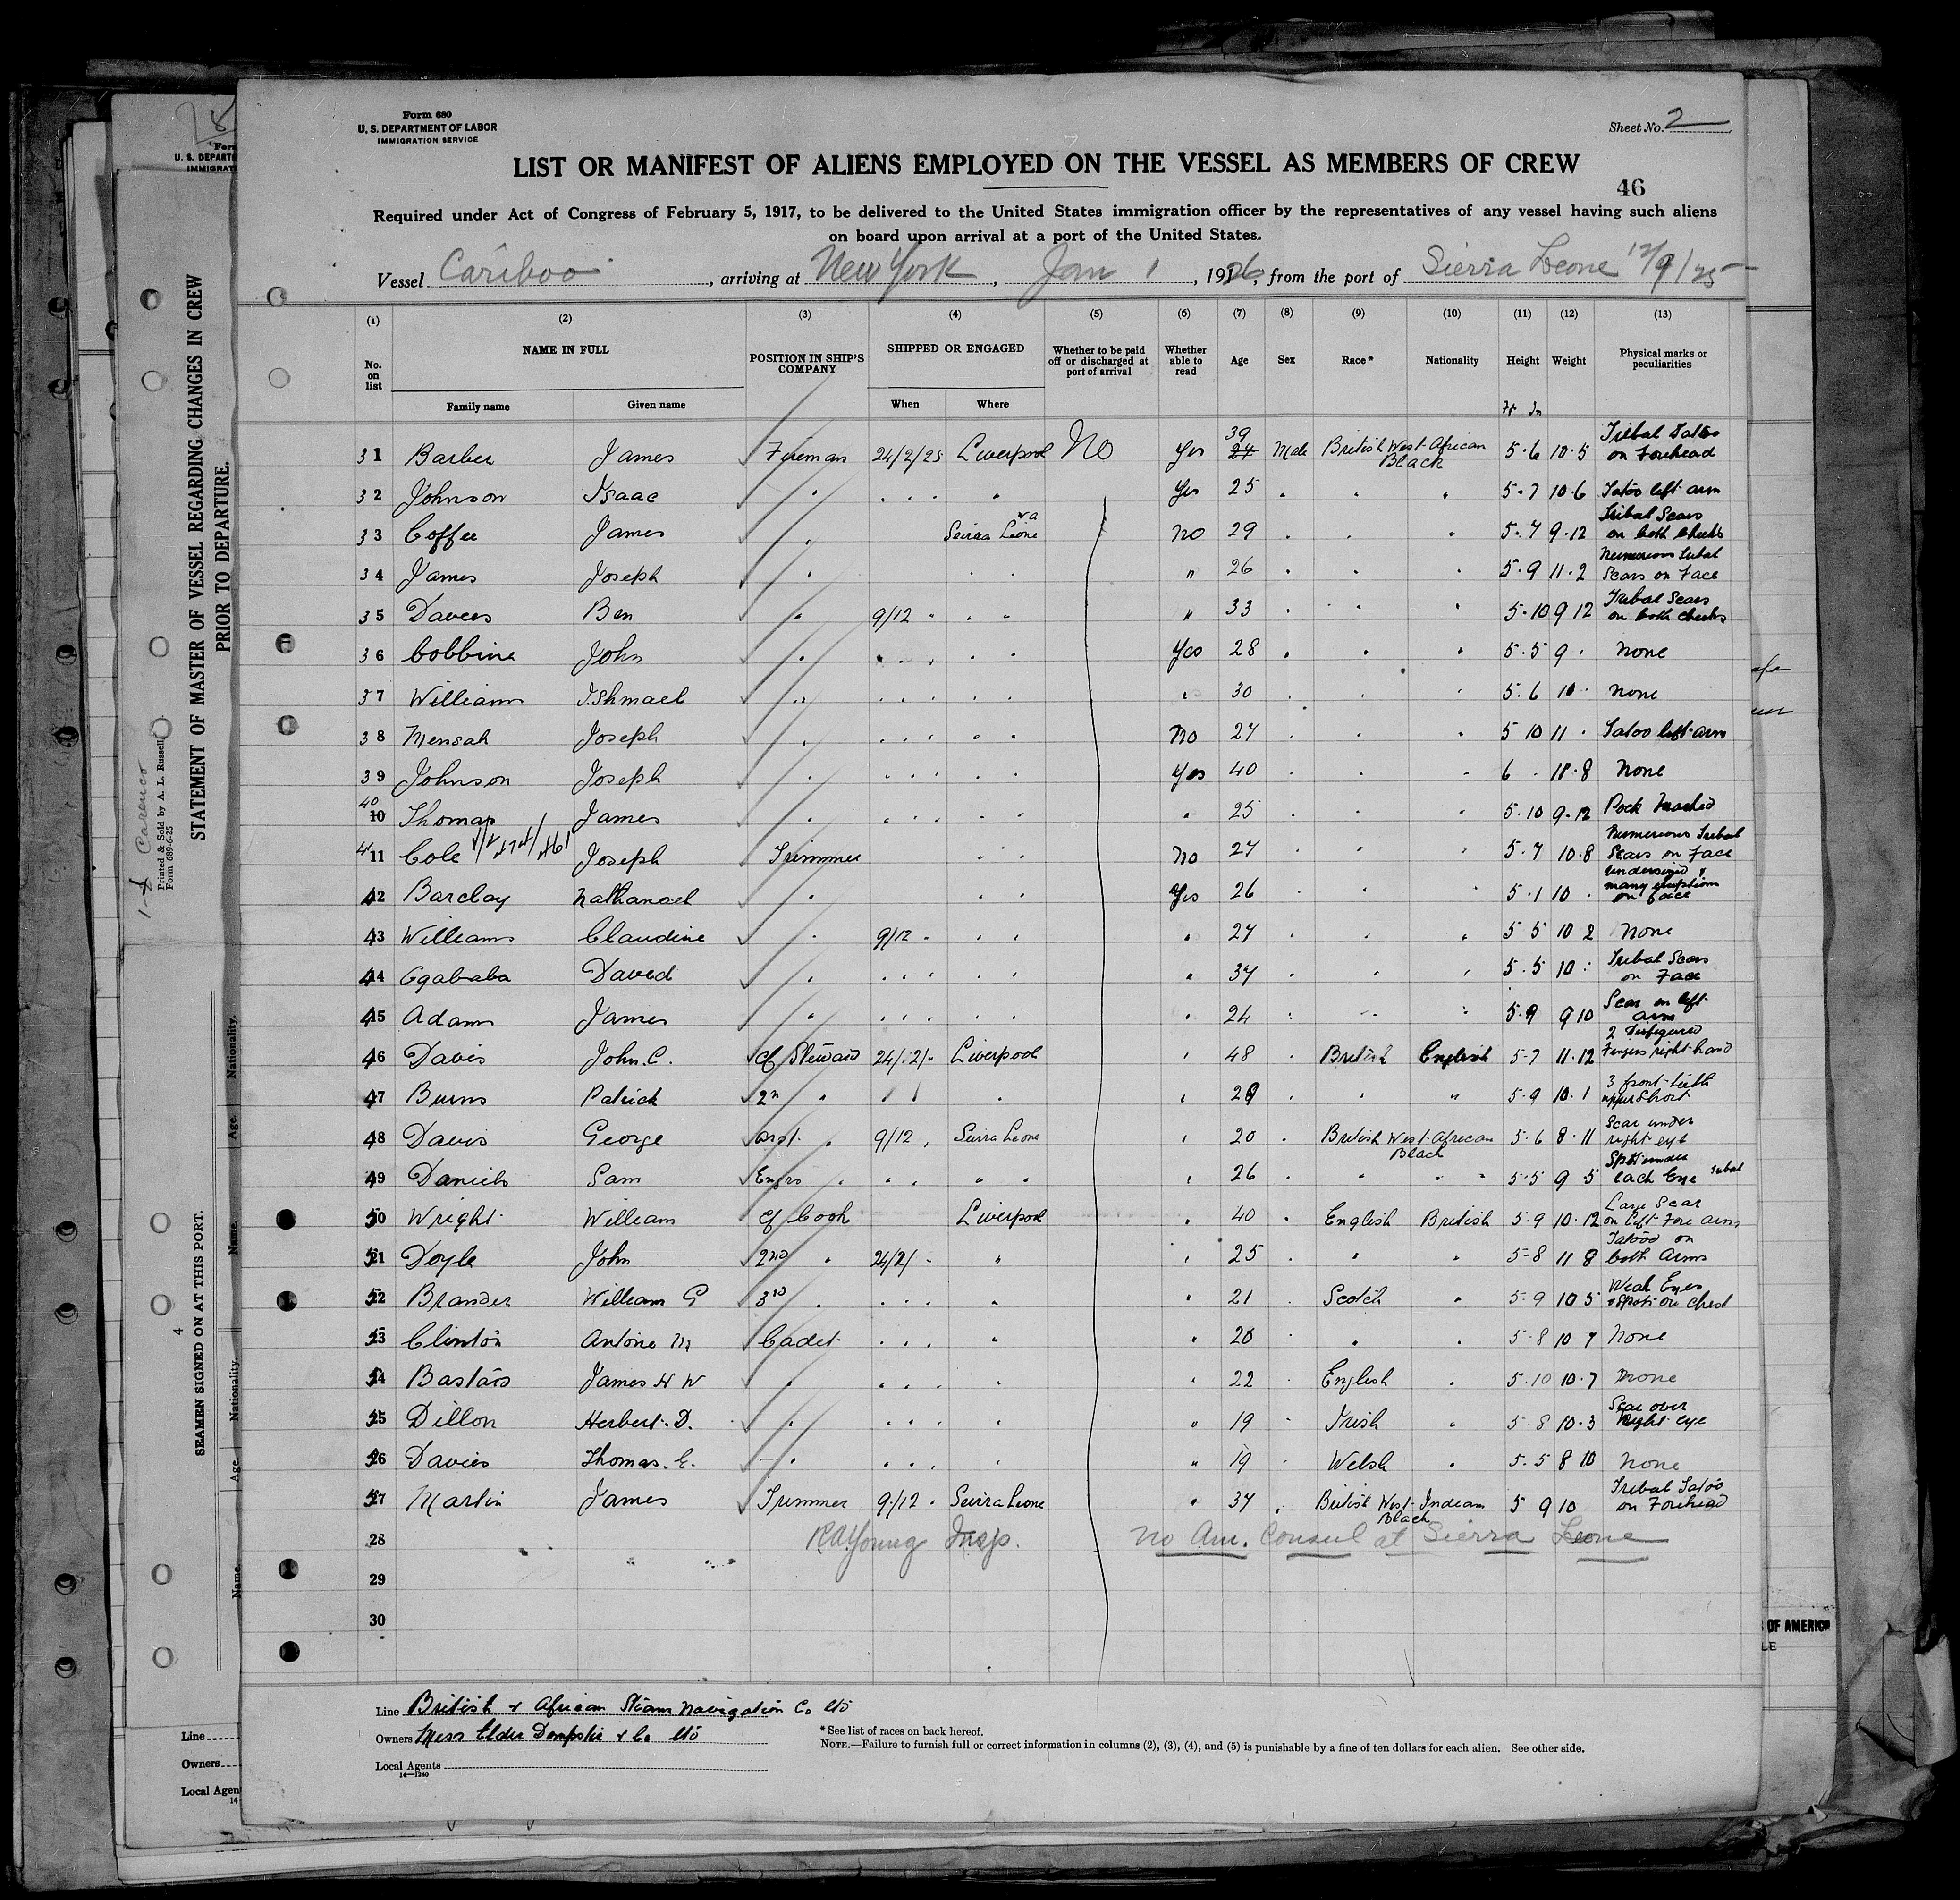 Form 680
U. S. DEPARTMENT OF LABOR
IMMIGRATION SERVICE
Sheet No. 2
LIST OR MANIFEST OF ALIENS EMPLOYED ON THE VESSEL AS MEMBERS OF CREW
46
Required under Act of Congress of February 5, 1917, to be delivered to the United States immigration officer by the representatives of any vessel having such aliens
on board upon arrival at a port of the United States.
Vessel Cariboo, arriving at New York, Jan 1, 1926, from the port of Sierra Leone 12/9/25
(1) (2) (3) (4) (5) (6) (7) (8) (9) (10) (11) (12) (13)
No. on list NAME IN FULL POSITION IN SHIP'S COMPANY SHIPPED OR ENGAGED Whether to be paid off or discharged at port of arrival Whether able to read Age Sex Race* Nationality Height Weight Physical marks or peculiarities
Family name Given name When Where Ft In
31 Barber James Fireman 24/2/25 Liverpool No Yes 39 24 Male British West African Black 5.6 10.5 Tribal Tatoo on Forehead
32 Johnson Isaac " " " " " Yes 25 " " " 5.7 10.6 Tatoo left arm
33 Coffee James " Seirra Leone No 29 " " " 5.7 9.12 Tribal Scars on both Cheeks
34 James Joseph " " " " 26 " " " 5.9 11.2 Numerious Tribal Scars on Face
35 Davies Ben " 9/12 " " " " 33 " " " 5.10 9 12 Tribal Scars on both cheeks
36 Cobbina John " " " " " " Yes 28 " " " 5.5 9 " None
37 Williams Ishmael " " " " " " " 30 " " " 5.6 10 " None
38 Mensah Joseph " " " " " " No 27 " " " 5 10 11 " Tatoo left arm
39 Johnson Joseph " " " " " " Yes 40 " " " 6 " 11.8 None
40 10 Thomas James " " " " " " " 25 " " " 5.10 9.12 Pock Marked
41 11 Cole Joseph Trimmer " " No 27 " " " 5.7 10.8 Numerious Tribal Scars on Face
42 Barclay Nathanael " " " Yes 26 " " " 5.1 10 " undersized & many eruptions on face
43 Williams Claudine " 9/12 " " " " 27 " " " 5 5 10 2 None
44 Ggababa David " " " " " " " 37 " " " 5.5 10 : Tribal Scars on Face
45 Adams James " " " " " " " 24 " " " 5.9 9 10 Scar on left arm
46 Davis John C. Cf Steward 24/2/" Liverpool " 48 " British English 5-7 11.12 2 Disfigured Fingers right hand
47 Burns Patrick 2n " " " " " 29 " " " 5.9 10.1 3 front teeth upper Short
48 Davis George asst. " 9/12 " Seirra Leone " 20 " British West African Black 5-6 8.11 Scar under right eye
49 Daniels Sam Engrs " " " " " " 26 " " " " 5-5 9 5 Spot under each Eye Tribal
50 Wright William Cf Cook Liverpool " 40 " English British 5-9 10.12 Large Scar on left Fore arm
51 Doyle John 2nd " 24/2/ " " " 25 " " 5-8 11 8 Tatooo on both arms
52 Brander William G 3rd " " " " " " 21 " Scotch " 5-9 10 5 Weak Eyes Spots on Chest
53 Clinton Antoine M Cadet " " " " " 20 " " " 5-8 10 7 None
54 James H W " " " " " " 22 " English " 5.10 10.7 None
55 Dillon Herbert D. " " " " " " 19 " Irish " 5 8 10.3 Scar over Right eye
56 Davies Thomas E. " " " " " " 19 " Welsh " 5.5 8 10 None
57 Martin James Trimmer 9/12 " Seirra Leone " 37 " British West Indian Black 5 9 10 Tribal Tatoo on Forehead
28 R A Young Insp. No Am. Consul at Sierra Leone
29
30
Line British & African Steam Navigation Co Ltd
Owners Mess Elder Dempster & Co Ltd
Local Agents
14—1240
* See list of races on back hereof.
NOTE.—Failure to furnish full or correct information in columns (2), (3), (4), and (5) is punishable by a fine of ten dollars for each alien. See other side.
STATEMENT OF MASTER OF VESSEL REGARDING CHANGES IN CREW
PRIOR TO DEPARTURE.
Printed & Sold by A. L. Russell
Form 689-6-25
SEAMEN SIGNED ON AT THIS PORT.
4
Nationality.
Age.
Name.
Nationality.
Age.
Name.
U. S. DEPARTM
IMMIGRATI
Line
Owners
Local Agen
14
OF AMERICA